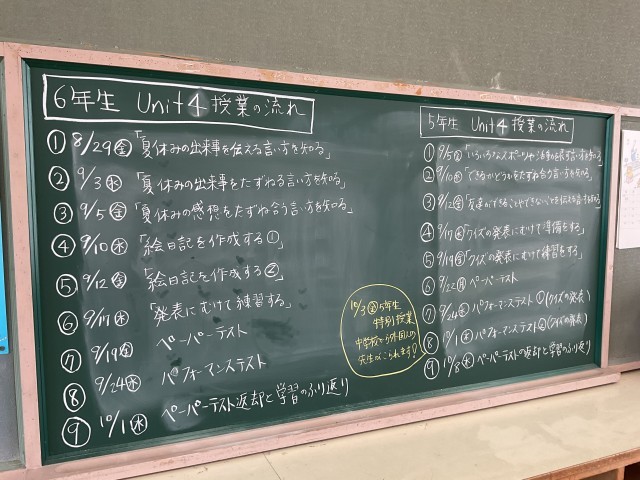 6年生 Unit4 授業の流れ
① 8/29金 「夏休みの出来事を伝える言い方を知る」
② 9/3水 「夏休みの出来事をたずねる言い方を知る」
③ 9/5金 「夏休みの感想をたずね合う言い方を知る」
④ 9/10水 「絵日記を作成する①」
⑤ 9/12金 「絵日記を作成する②」
⑥ 9/17水 「発表にむけて練習する」
⑦ 9/19金 ペーパーテスト
⑧ 9/24水 パフォーマンステスト
⑨ 10/1水 ペーパーテスト返却と学習のふり返り
10/3金5年生
特別授業
中学校から外国人の
先生がこられます!
5年生 Unit4 授業の流れ
① 9/5金 「いろいろなスポーツや
② 9/10水 「できるかどうかをたずね合う言い方を知る」
③ 9/12金 「友達のできることやできないことを伝える言い方を知る」
④ 9/17水 「クイズの発表にむけて準備をする」
⑤ 9/19金 「クイズの発表にむけて練習をする」
⑥ 9/22月 ペーパーテスト
⑦ 9/24水 パフォーマンステスト①(クイズの発表)
⑧ 10/1水 パフォーマンステスト②(クイズの発表)
⑨ 10/8水 ペーパーテストの返却と学習のふり返り